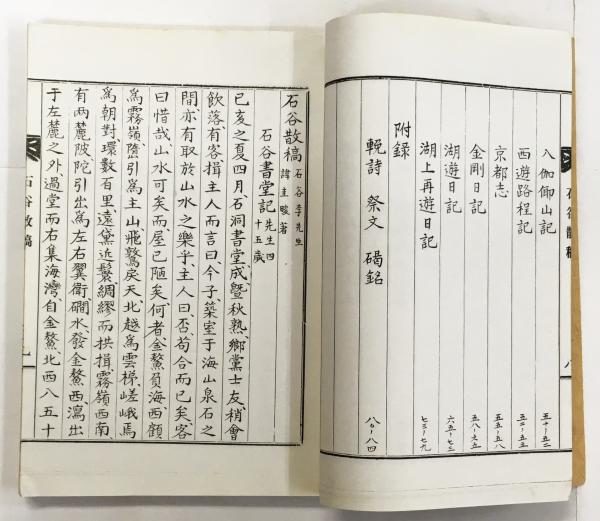 入伽倻山記 五十~五二
西遊路程記 五二~五五
京都志 五五~五八
金剛日記 五八~六五
湖遊日記 六五~七三
湖上再遊日記 七三~七九
附錄
輓詩 祭文 碣銘 八〇~八四
石谷散稿
石谷散稿 石谷李先生諱圭晙著
石谷書堂記 先生四十五歲
己亥之夏四月石洞書堂成曁秋熟鄕黨士友稍會
飮落有客揖主人而言曰今子築室于海山泉石之
間亦有取於山水之樂乎主人曰否苟合而已矣客
曰惜哉山水可矣而屋已陋矣何者金鰲負海西顧
爲霧嶺隨引爲主山飛騖戾天北越爲雲梯嵯峨焉
爲朝對環數有里遠黛近鬟綢繆而拱揖霧嶺西南
有兩麓陂陀引出爲左右翼衛磵水發金鰲西瀉出
于左麓之外過堂而右集海灣自金鰲北西八五十
石谷散稿